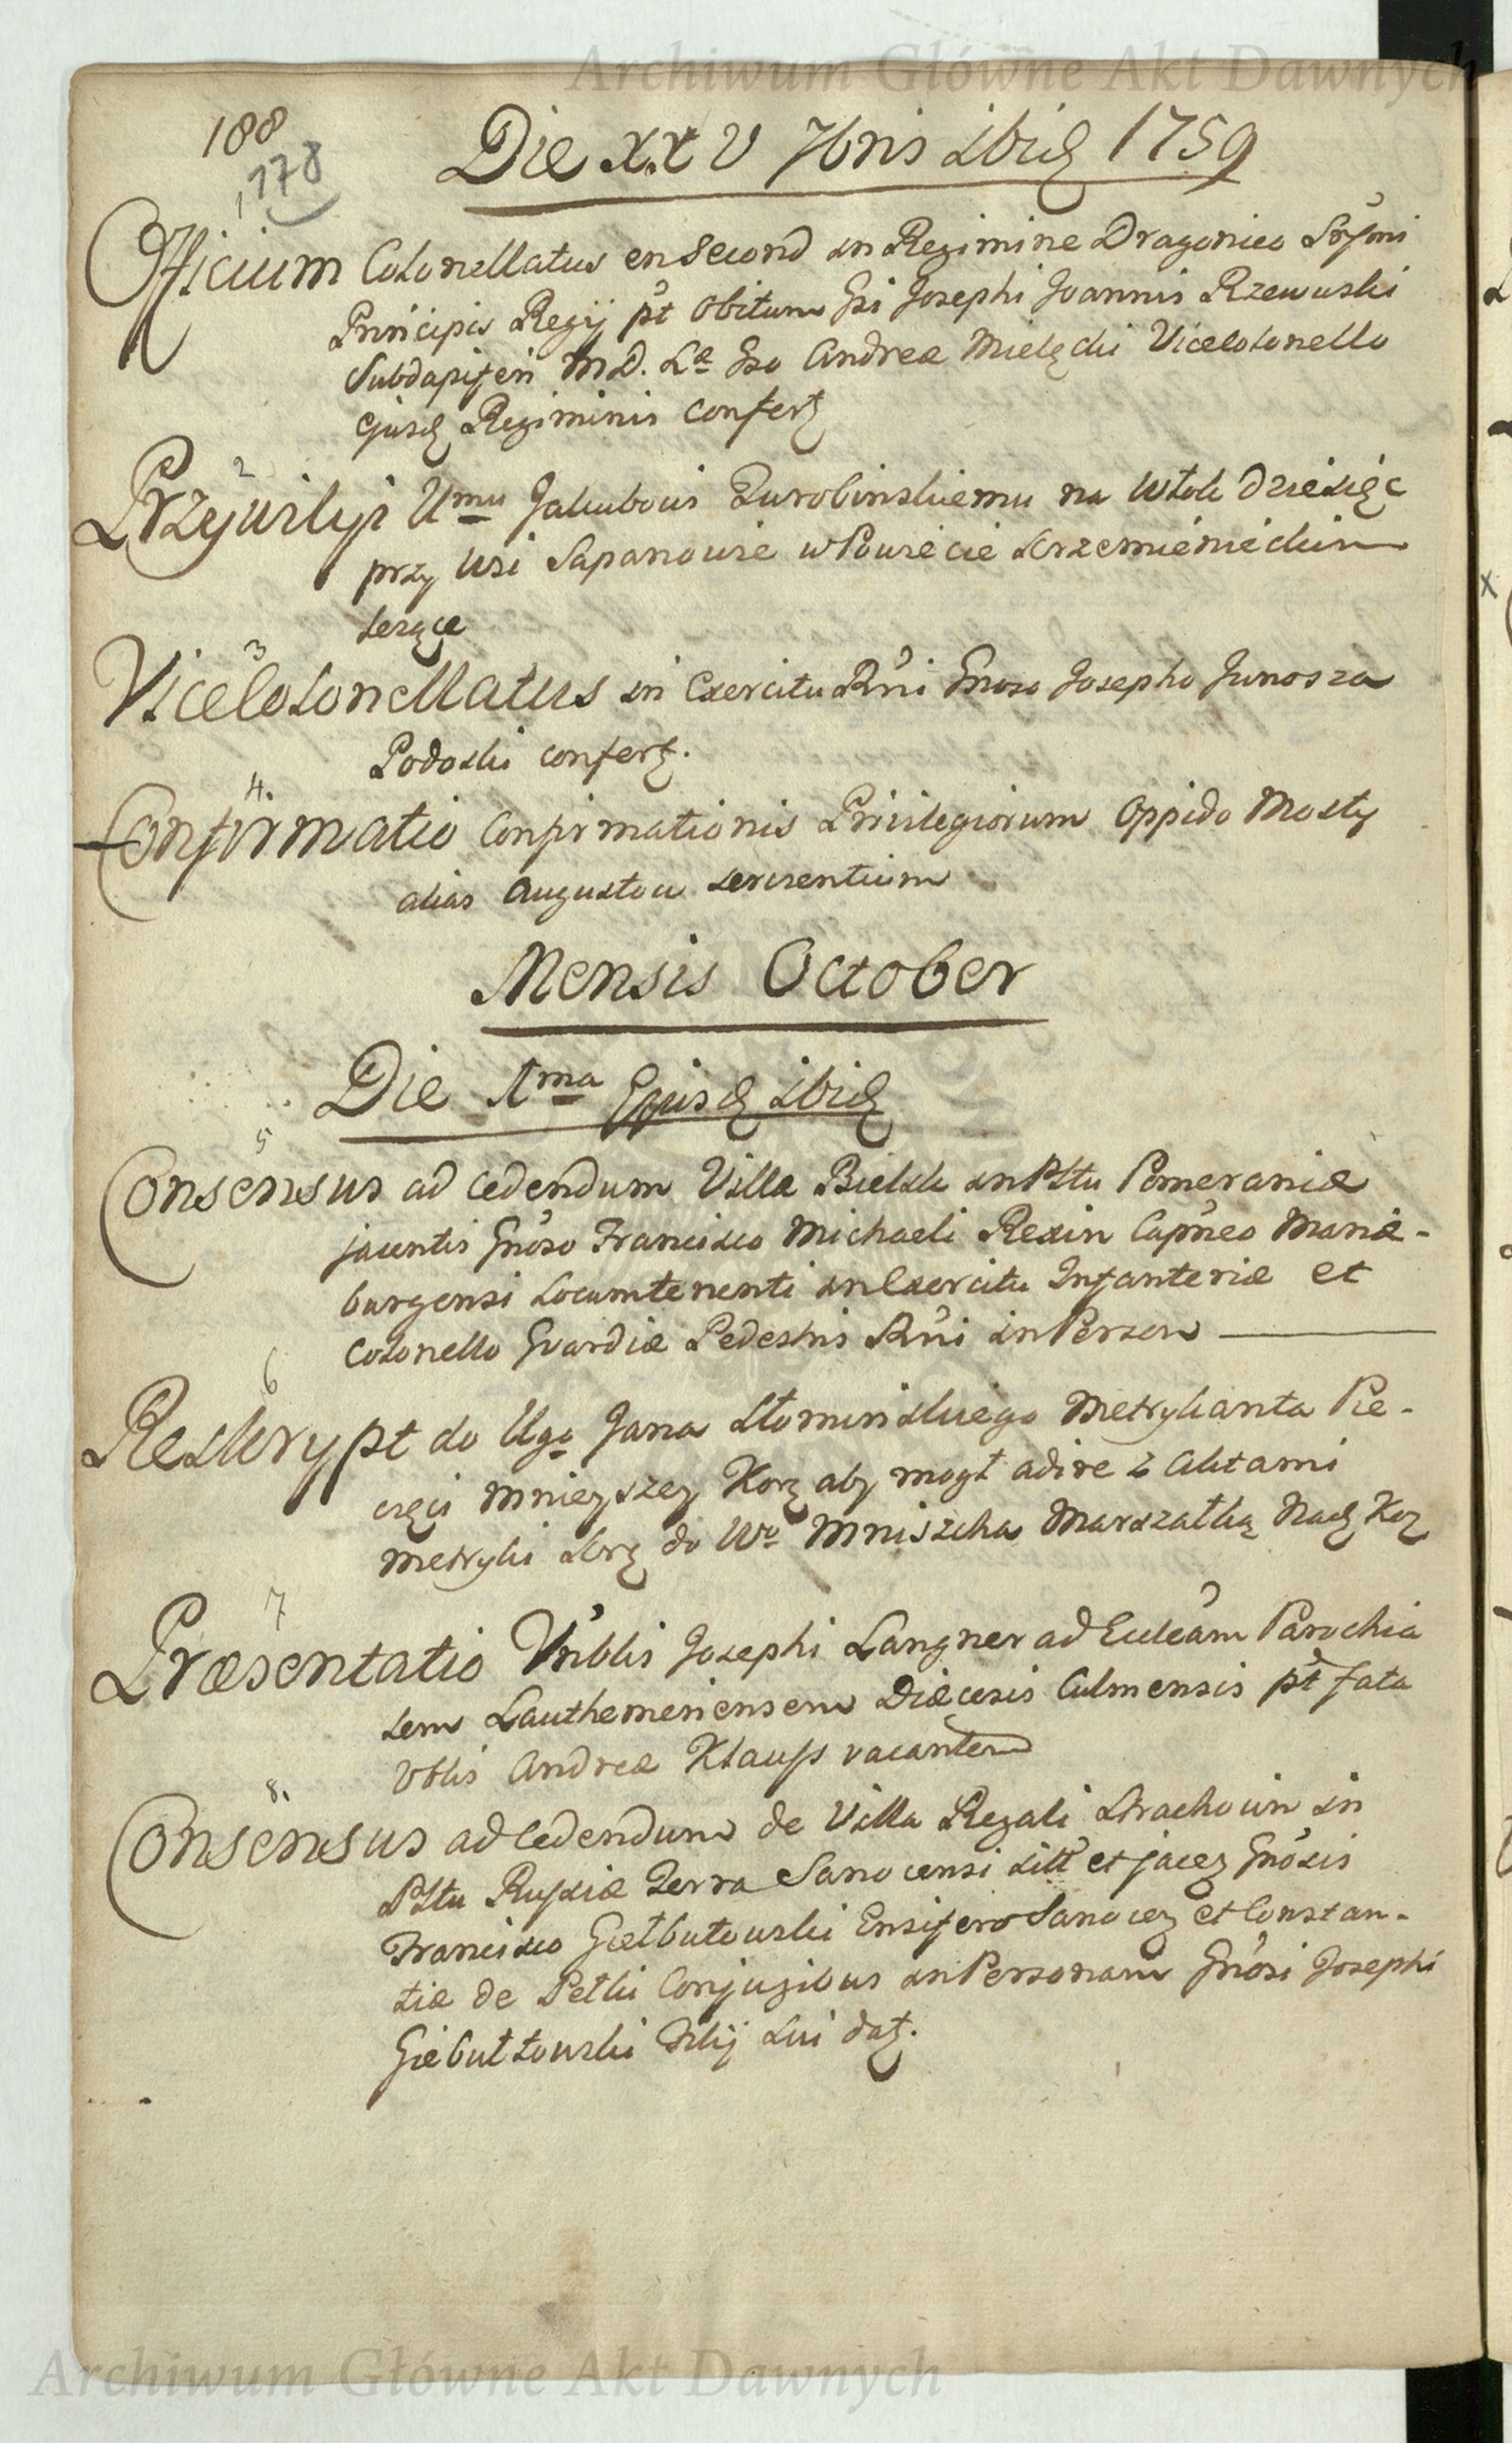 Archiwum Główne Akt Dawnych
188
178
Die XXV 7bris ibid 1759
1
Officium Colonellatus en Second in Regimine Dragonico Srssmi
Principis Regij pt obitum Gsi Josephi Joannis Rzewuski
Subdapiferi M.D.La Gso Andreæ Mielęcki Vicecolonello
ejusd Regiminis confert
2
Przywiley Umu Jakubowi Zurobinskiemu na Włok dziesięć
przy Wsi Sapanowie w Powiecie Krzemienieckim
lezące
3
Vicecolonellatus in Exercitu Rni Gnoso Josepho Junosza
Podoski confert.
4.
Confirmatio Confirmationis Privilegiorum Oppido Mosty
alias Augustow servientium
Mensis October
Die 1ma Ejusd ibid
5
Consensus ad cedendum Villæ Bielsk in Pltu Pomeraniæ
jacentis Gnoso Francisco Michaeli Rexin Capneo Mariæ-
burgensi Locumtenenti in Exercitu Infanteriæ et
Colonello Gvardiæ Pedestris Rni in Person
6
Reskrypt do Ugo Jana Słominskiego Metrykanta Pie-
częci Mnieyszey Kor aby mogł adire z Aktami
Metryki Kor do Wo Mniszcha Marszałka Nad Kor
7
Præsentatio Vnblis Josephi Langner ad Eccleam Parochia
lem Lauthemeriensem Diæcesis Culmensis pt fata
Vblis Andreæ Klauss vacantem
8.
Consensus ad cedendum de Villa Regali Strachoin in
Pltu Russiæ Terra Sanocensi sitt et jacen Gnosis
Francisco Giełbutowski Ensifero Sanocen et Constan-
tiæ de Pełki Conjugibus in Personam Gnosi Josephi
Giebułtowski Filij sui dat.
Archiwum Główne Akt Dawnych